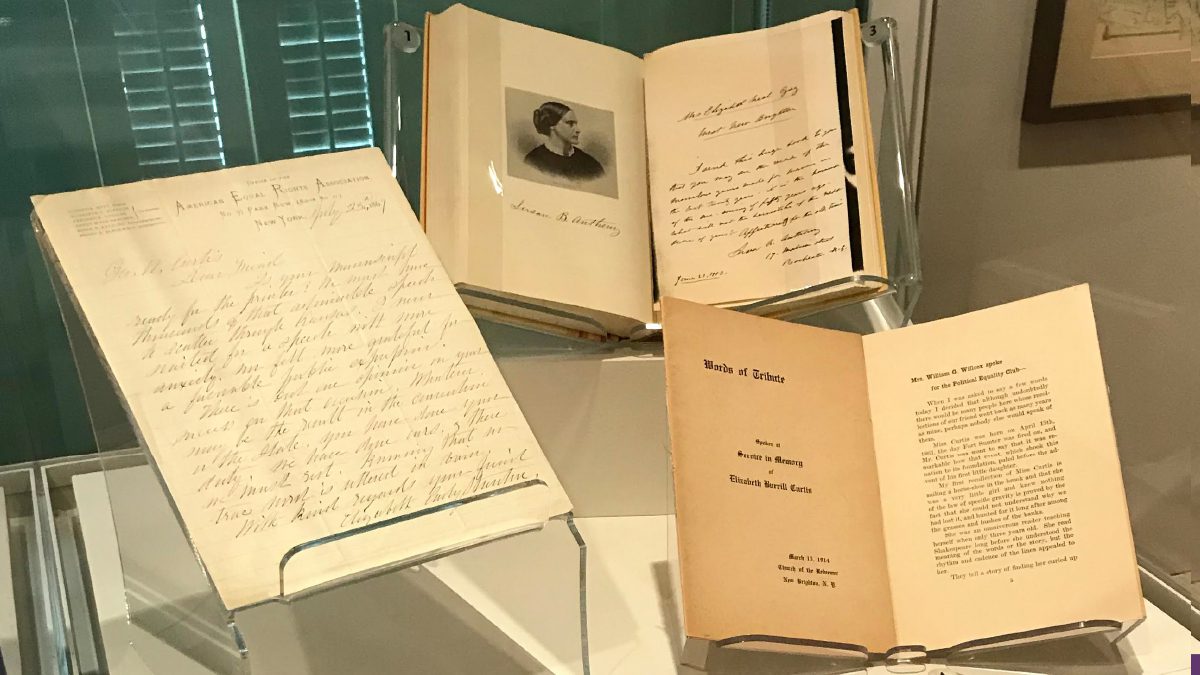 1
3
OFFICE OF THE
AMERICAN EQUAL RIGHTS ASSOCIATION
No. 37 PARK ROW (ROOM No. 17)
NEW YORK, July 25th
Geo. W. Curtis
Dear Friend
Is your Manuscript
ready for the printer? We must have
thousands of that admirable speech
to scatter through Kansas. I never
waited for a speech with more
anxiety, nor felt more grateful for
a favorable public expression.
There is but one opinion on your
success on that occasion. Whatever
may be the result in the convention
or the State, you have done your
duty, we have done ours, & there
we must rest knowing that no
true word is uttered in vain.
With kind regards your friend
Elizabeth Cady Stanton
Susan B. Anthony
Mrs Elizabeth Neal Gay
West New Brighton
I send this huge book to you
that you may see the
made for women in
the last twenty years
of fifty years ago
Affectionately
Susan B. Anthony
17 Madison
Rochester N.Y.
Words of Tribute
Spoken at
Service in Memory
of
Elizabeth Burrill Curtis
March 15, 1914
Church of the Redeemer
New Brighton, N. Y
Mrs. William G. Willcox spoke
for the Political Equality Club—
When I was asked to say a few words
today I decided that although undoubtedly
there would be many people here whose recol-
lections of our friend went back as many years
as mine, perhaps nobody else would speak of
them.
Miss Curtis was born on April 15th,
1861, the day Fort Sumter was fired on, and
Mr. Curtis was wont to say that it was re-
markable how that event, which shook this
nation to its foundation, paled before the ad-
vent of his first little daughter.
My first recollection of Miss Curtis is
sailing a horse-shoe in the brook and that she
was a very little girl and knew nothing
of the law of specific gravity is proved by the
fact that she could not understand why we
had lost it, and hunted for it long after among
the grasses and bushes of the banks.
She was an omnivorous reader teaching
herself when only three years old. She read
Shakespeare long before she understood the
meaning of the words or the story, but the
rhythm and cadence of the lines appealed to
her.
They tell a story of finding her curled up
5